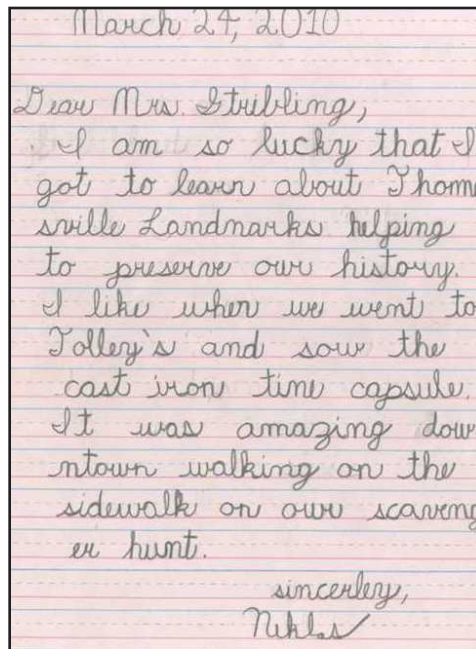 March 24, 2010
Dear Mrs. Stribling,
I am so lucky that I
got to learn about Thoma
sville Landmarks helping
to preserve our history.
I like when we went to
Tolley's and sow the
cast iron time capsule.
It was amazing dow
ntown walking on the
sidewalk on our scaveng
er hunt.
sincerley,
Niklas